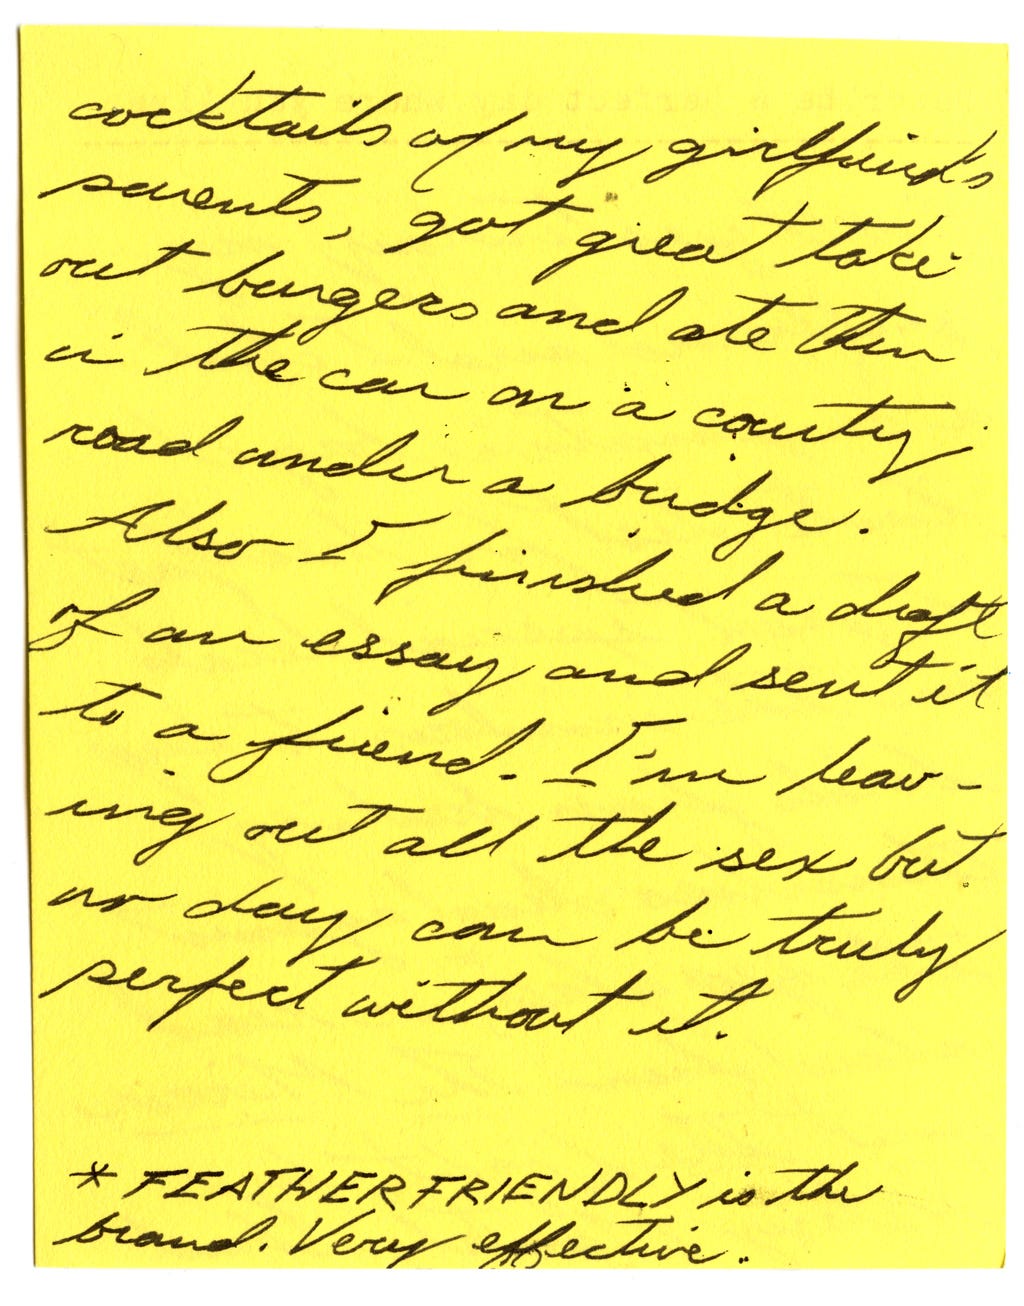 cocktails of my girlfriend's
parents, got great take
out burgers and ate them
in the car on a county
road under a bridge.
Also I finished a draft
of an essay and sent it
to a friend. I'm leav-
ing out all the sex but
no day can be truly
perfect without it.
* FEATHERFRIENDLY is the
brand. Very effective.